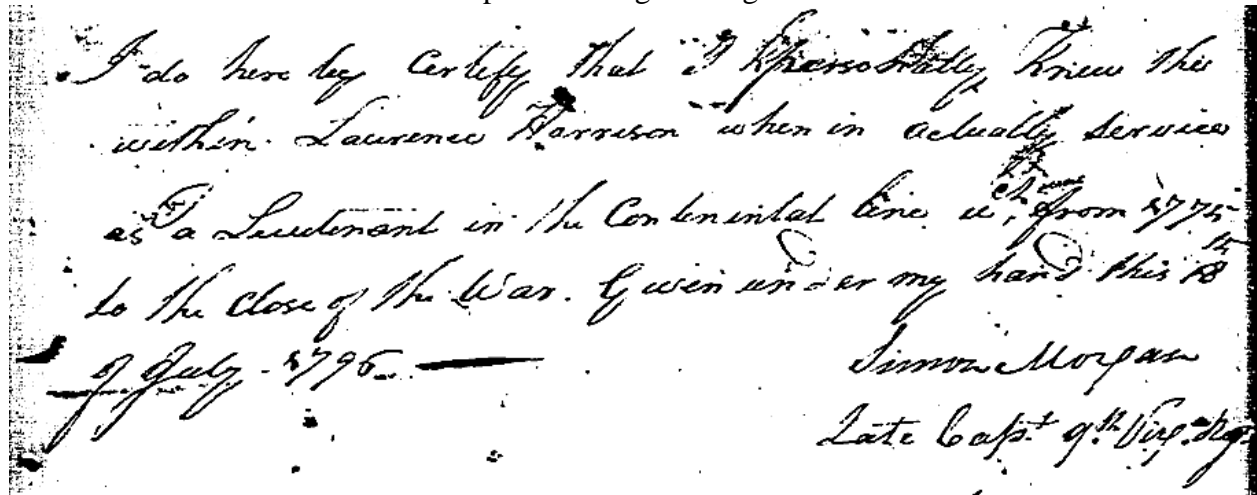 I do here by Certify that I personally Knew the
within Laurence Harrison when in actually Service
as a Lieutenant in the Continental line from 1775
to the Close of the War. Given under my hand this 18th
of July 1796
Simon Morgan
Late Capt 9th Virg. Reg.